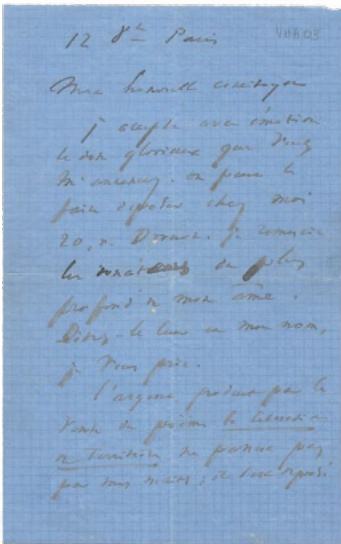 12 8bre Paris
Mon honorable concitoyen
j'accepte avec émotion
le don glorieux que vous
m'annoncez. on peut le
faire déposer chez moi
20, r. Drouot. je remercie
les donateurs du plus
profond de mon âme.
Dites-le leur en mon nom,
je vous prie.
l'argent produit par la
vente du poème la libération
du territoire ne passera pas
par mes mains ; il sera déposé